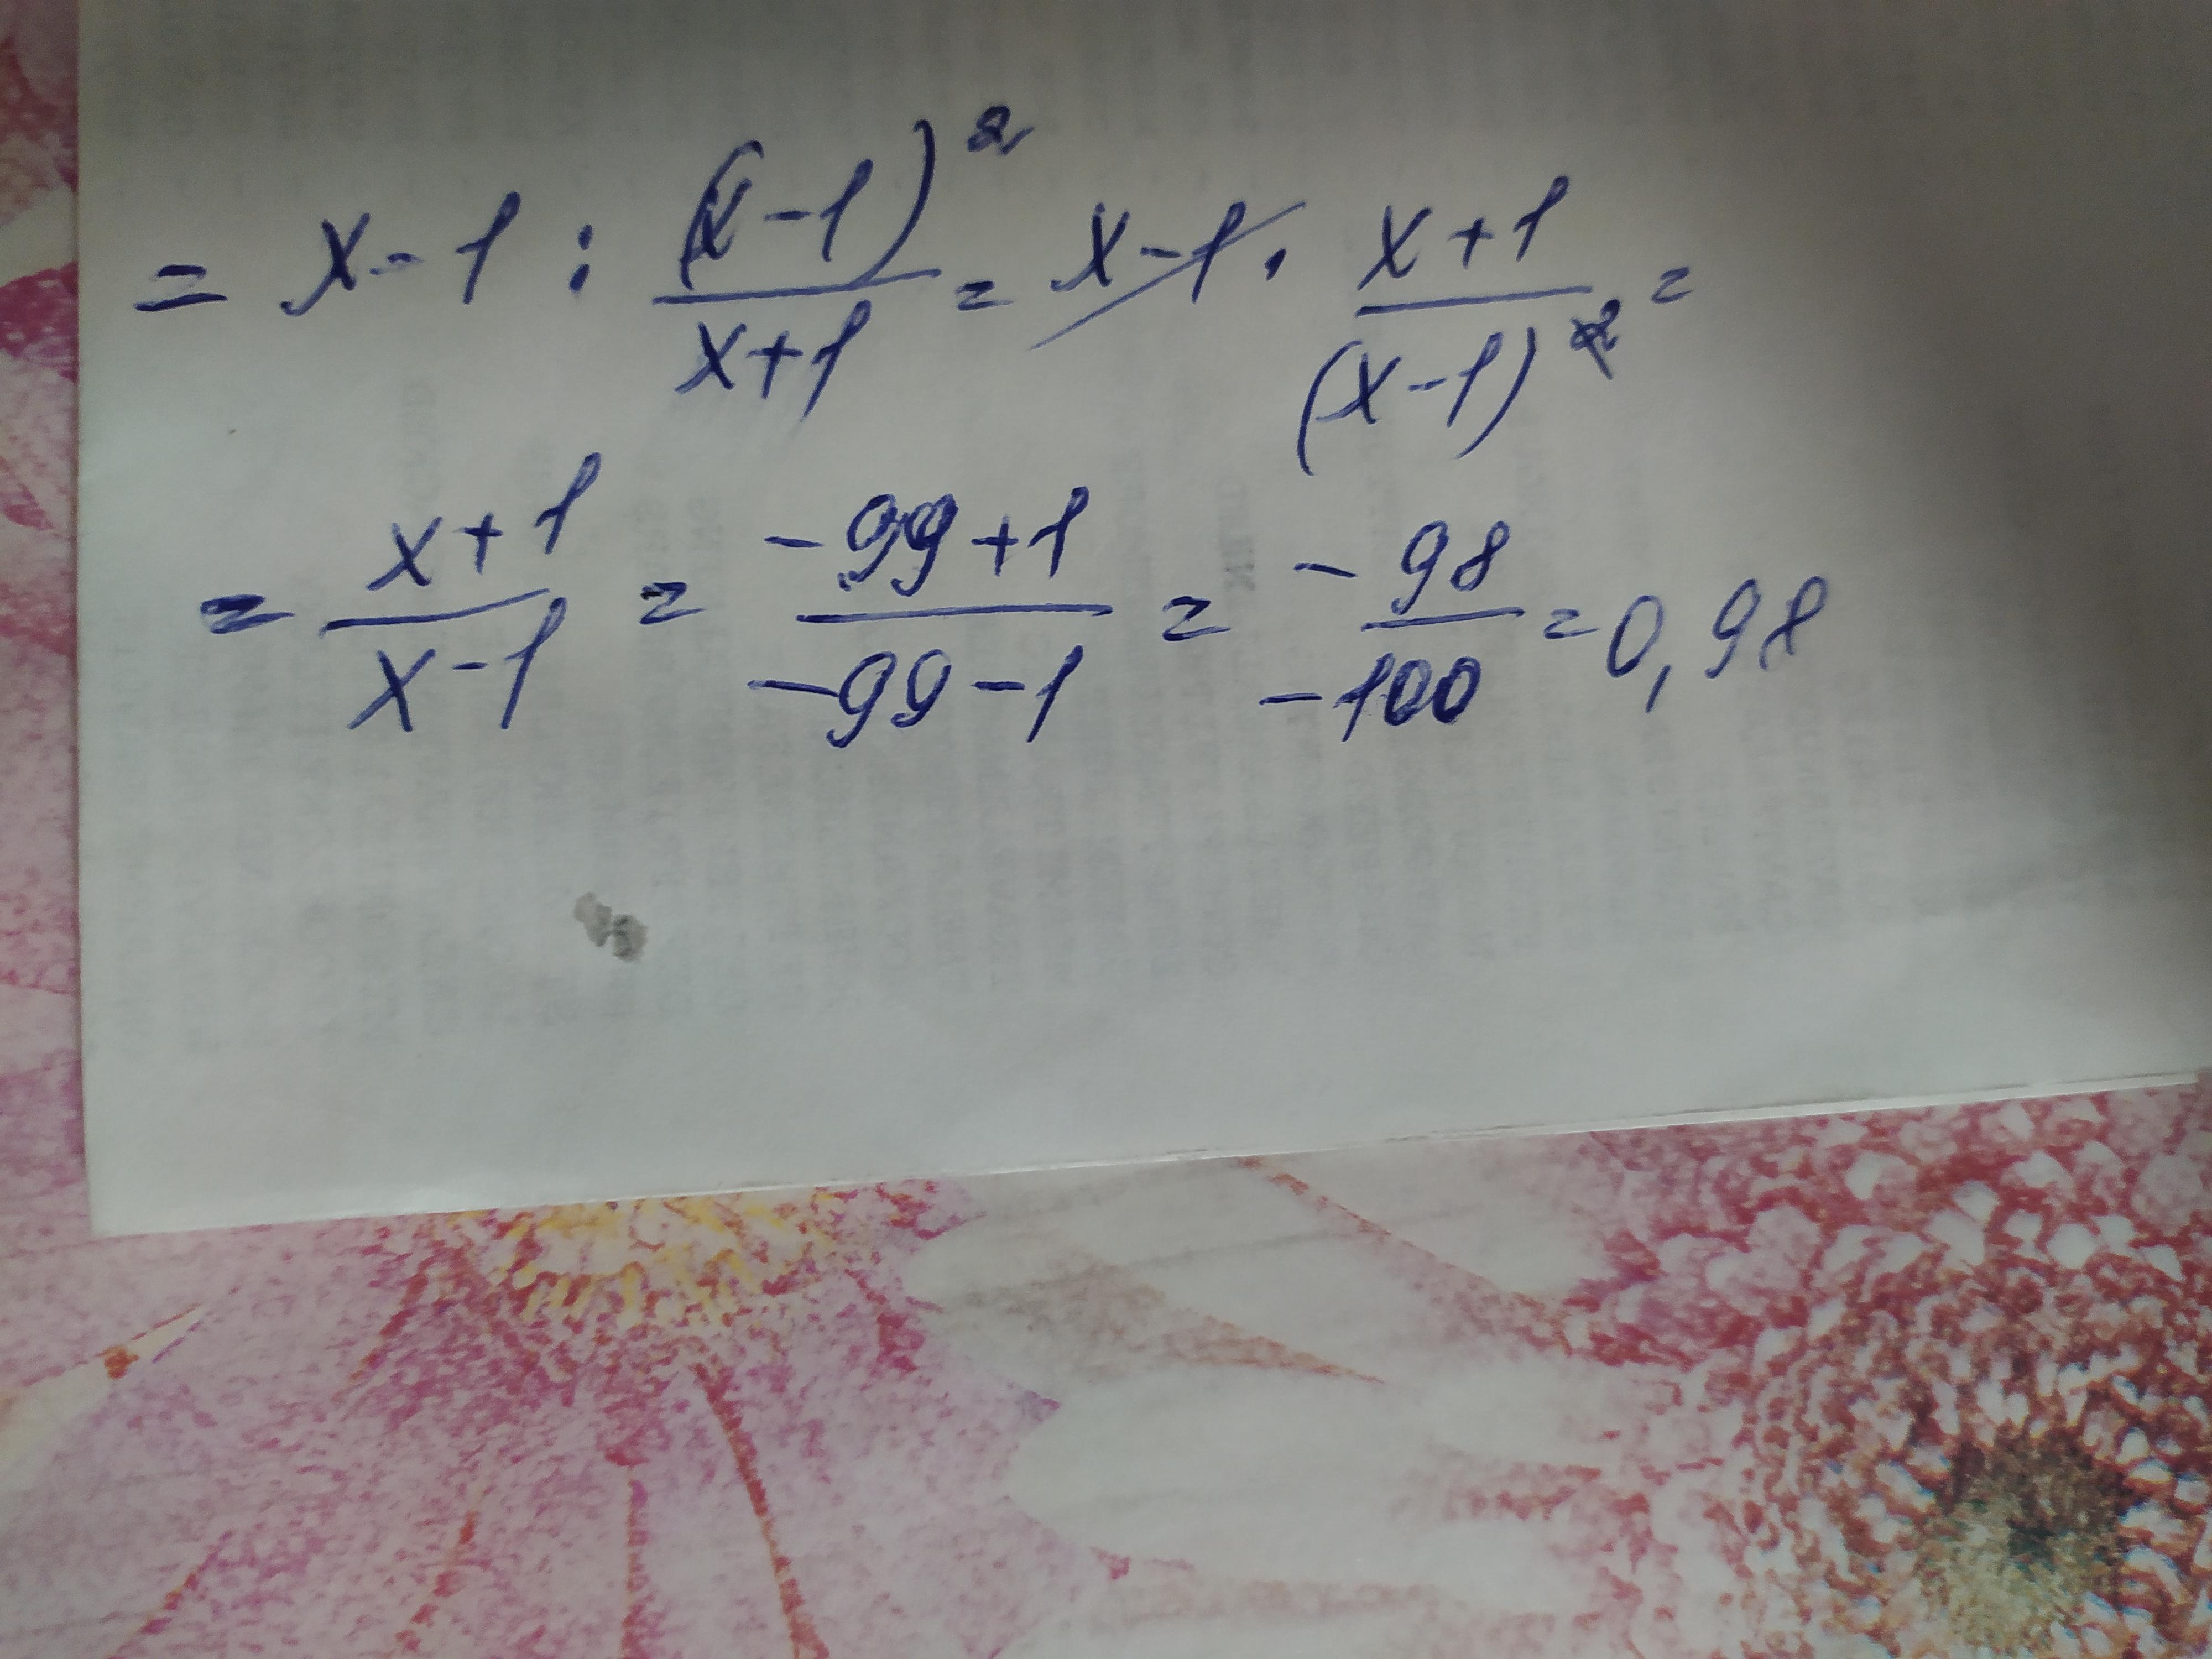 = x - 1 : (x - 1)² / (x + 1) = x - 1 · (x + 1) / (x - 1)² =
= (x + 1) / (x - 1) = (-99 + 1) / (-99 - 1) = -98 / -100 = 0,98